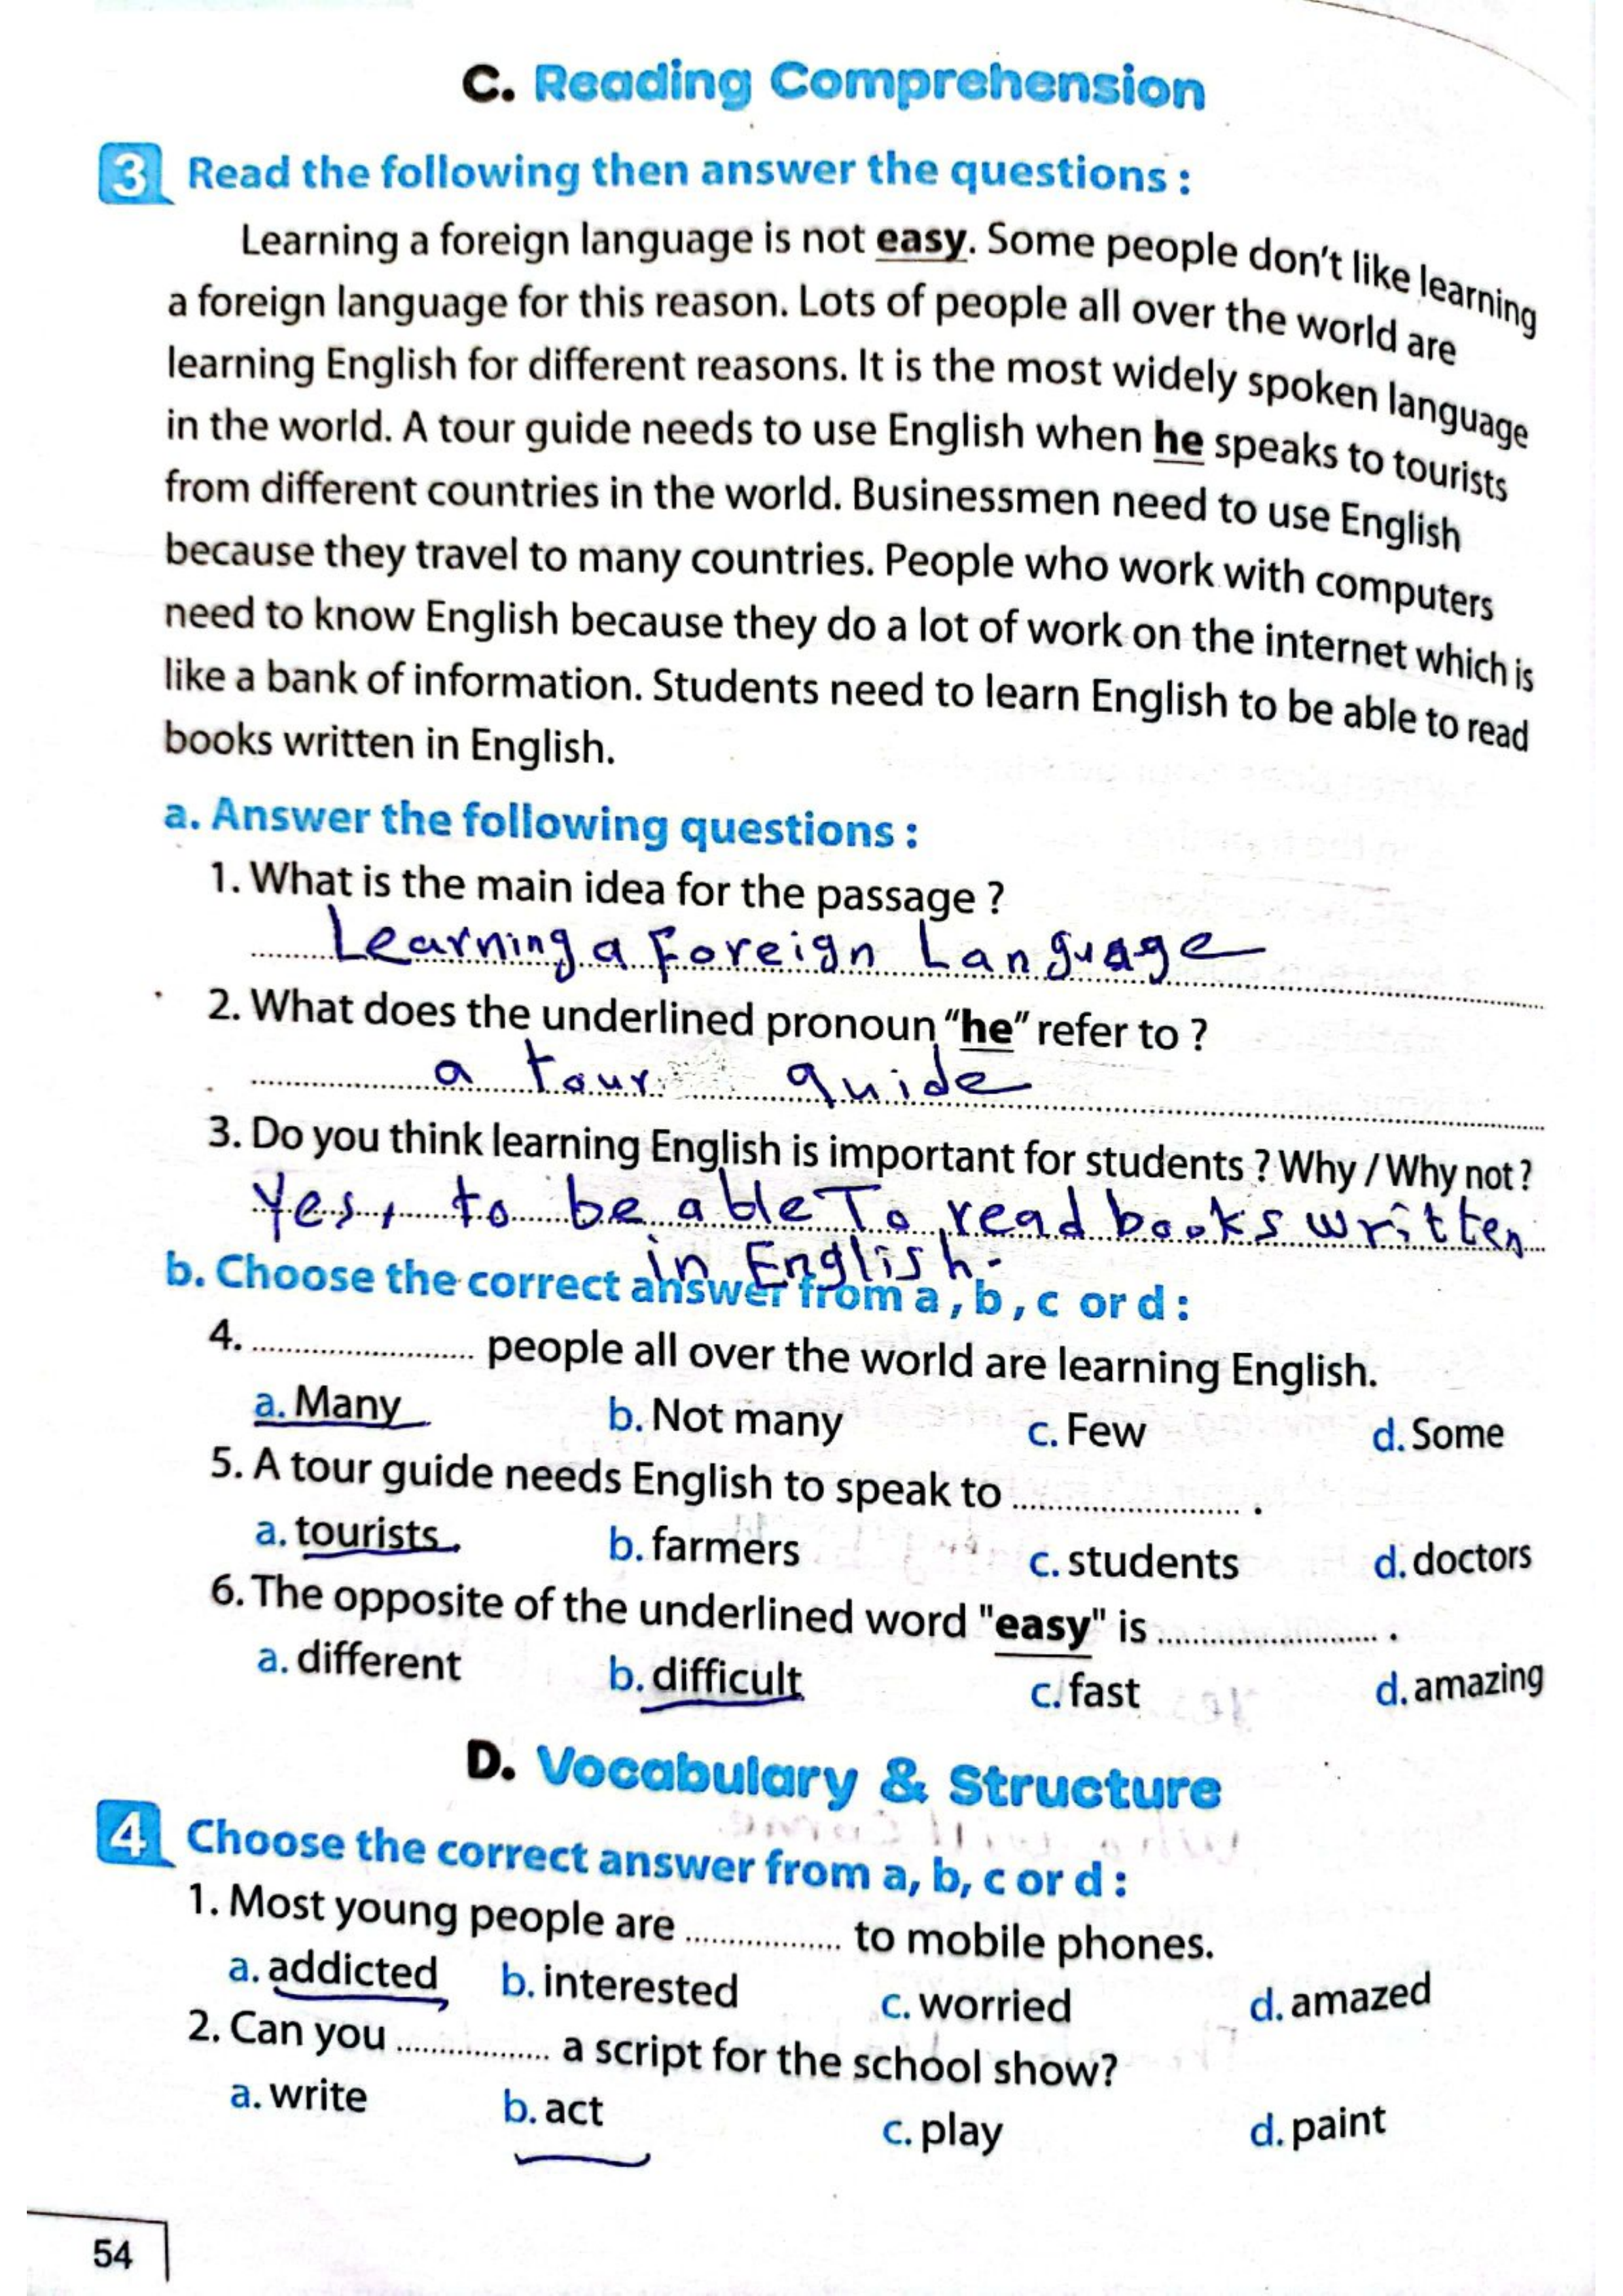 C. Reading Comprehension
3 Read the following then answer the questions :
Learning a foreign language is not easy. Some people don't like learning
a foreign language for this reason. Lots of people all over the world are
learning English for different reasons. It is the most widely spoken language
in the world. A tour guide needs to use English when he speaks to tourists
from different countries in the world. Businessmen need to use English
because they travel to many countries. People who work with computers
need to know English because they do a lot of work on the internet which is
like a bank of information. Students need to learn English to be able to read
books written in English.
a. Answer the following questions :
1. What is the main idea for the passage ?
Learning a Foreign Language
2. What does the underlined pronoun "he" refer to ?
a tour guide
3. Do you think learning English is important for students ? Why / Why not ?
Yes, to be able To read books written
in English.
b. Choose the correct answer from a , b , c or d :
4. ........................ people all over the world are learning English.
a. Many b. Not many c. Few d. Some
5. A tour guide needs English to speak to ........................ .
a. tourists b. farmers c. students d. doctors
6. The opposite of the underlined word "easy" is ........................ .
a. different b. difficult c. fast d. amazing
D. Vocabulary & Structure
4 Choose the correct answer from a, b, c or d :
1. Most young people are .................. to mobile phones.
a. addicted b. interested c. worried d. amazed
2. Can you .................. a script for the school show?
a. write b. act c. play d. paint
54